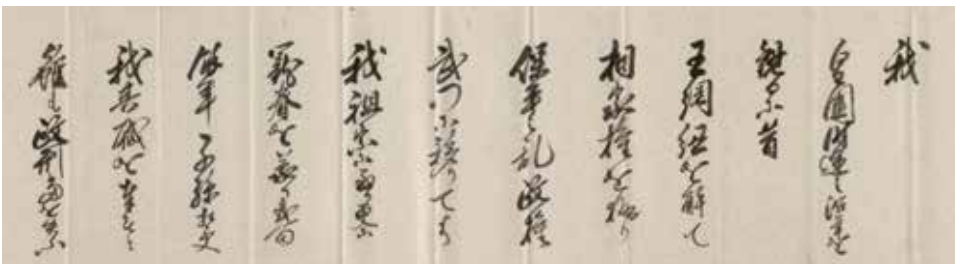 我
皇国時運之沿革を
観るに昔
王綱紐を解て
相家権を執り
保平之乱政権
武門に移りてより
我祖宗に至り更に
寵眷を蒙り弐百
余年子孫相受
我其職を奉すと
雖も政刑当を失ふ